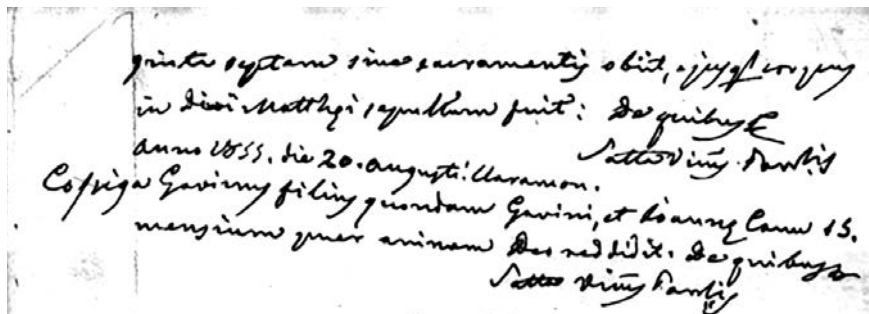 septam sine sacramentis obiit, ejusq corpus
in divi Matthęi sepultum fuit: De quibus
Satta Vius
Anno 1855. die 20. Augusti:
Cossiga Gavinus filius quondam Gavini, et Joannę Canu 15.
mensium puer animam Deo reddidit. De quibus
Satta Vius